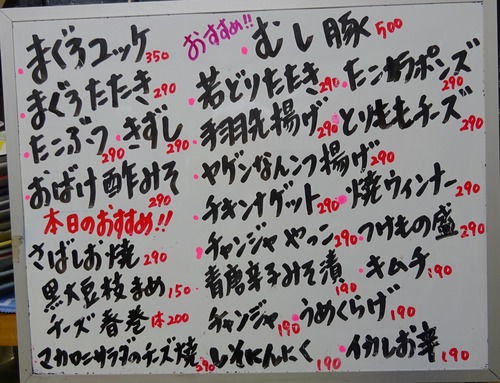 まぐろユッケ 350
まぐろたたき 290
たこぶつ 290 きずし 290
おばけ酢みそ 290
本日のおすすめ!!
さばしお焼 290
黒大豆枝まめ 150
チーズ春巻 1本200
マカロニサラダのチーズ焼 390
おすすめ!! むし豚 500
若どりたたき 290 たこ酢ポンズ 290
手羽先揚げ 290 とりももチーズ 290
ヤゲンなんこつ揚げ 290
チキンナゲット 290 焼ウィンナー 290
チャンジャやっこ 290 つけもの盛 290
青唐辛子みそ漬 190 キムチ 190
チャンジャ 190 うめくらげ 190
しそにんにく 190 イカしお辛 190